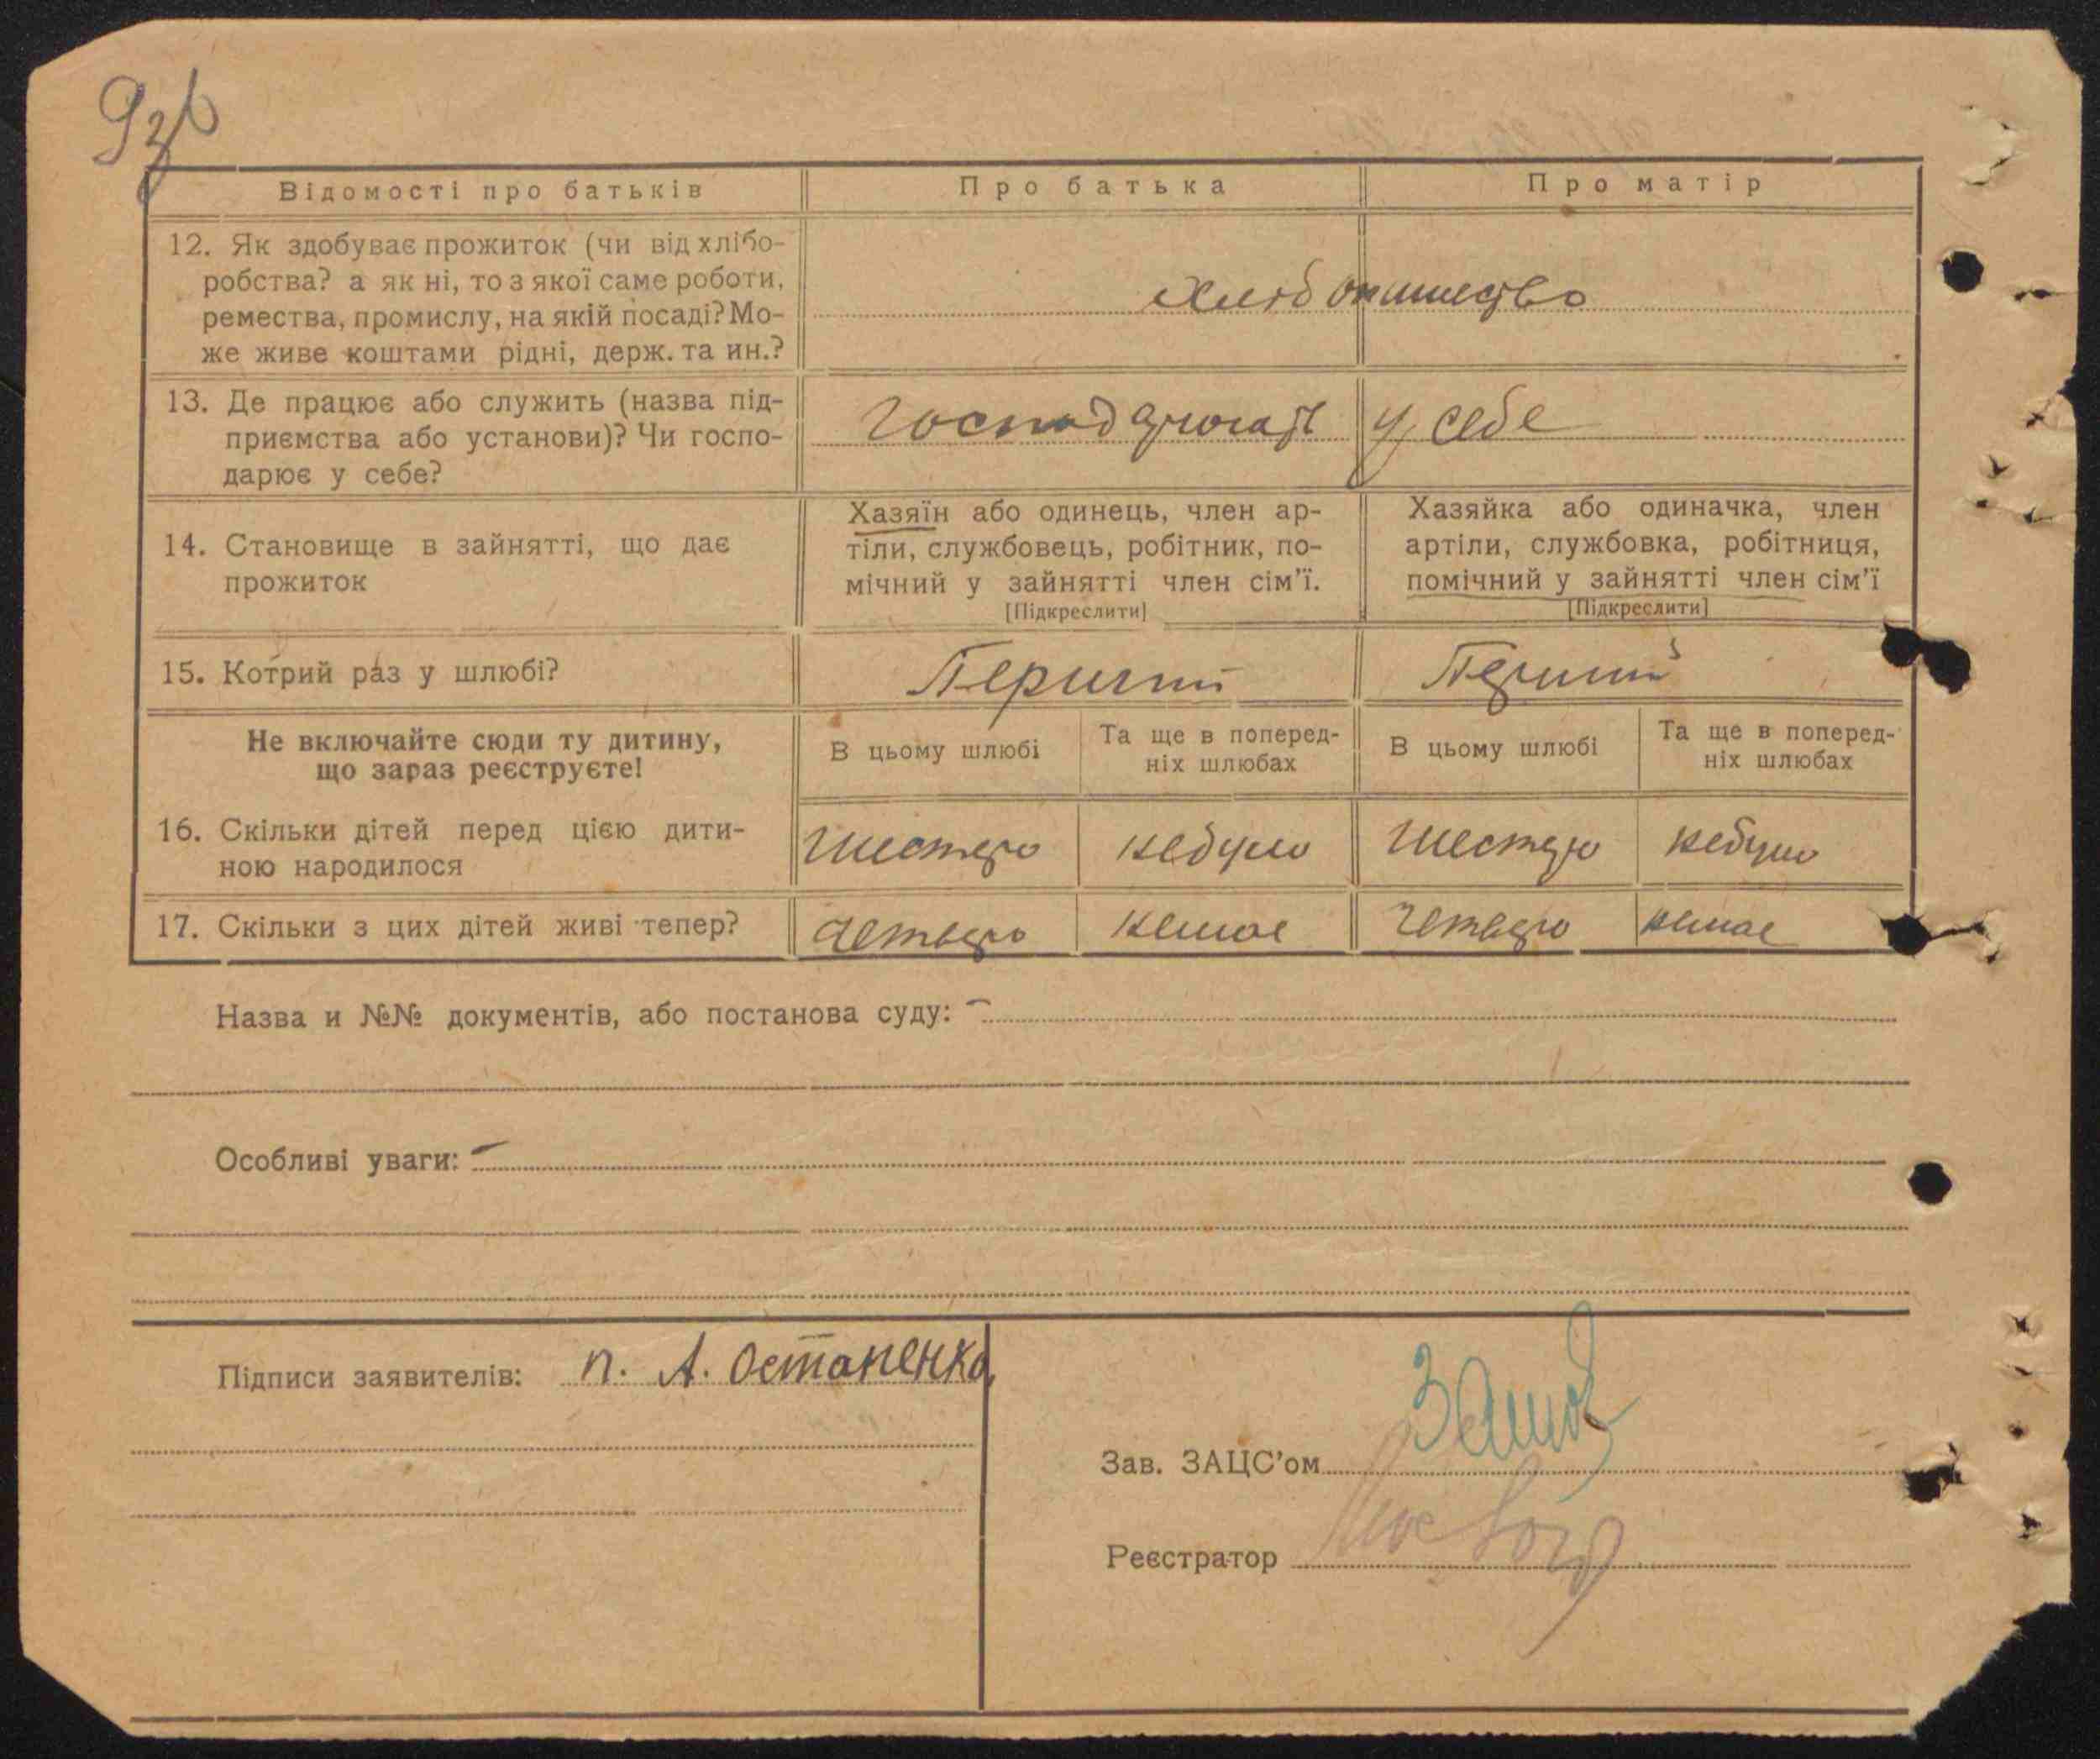 Відомості про батьків Про батька Про матір
12. Як здобуває прожиток (чи від хлібо-
робства? а як ні, то з якої саме роботи,
ремества, промислу, на якій посаді? Мо-
же живе коштами рідні, держ. та ин.?
13. Де працює або служить (назва під-
приємства або установи)? Чи госпо-
дарює у себе?
у себе
14. Становище в зайнятті, що дає
прожиток
Хазяїн або одинець, член ар-
тіли, службовець, робітник, по-
мічний у зайнятті член сім'ї.
[Підкреслити]
Хазяйка або одиначка, член
артіли, службовка, робітниця,
помічний у зайнятті член сім'ї
[Підкреслити]
15. Котрий раз у шлюбі? Перший Перший
Не включайте сюди ту дитину,
що зараз реєструєте!
В цьому шлюбі
Та ще в поперед-
ніх шлюбах
В цьому шлюбі
Та ще в поперед-
ніх шлюбах
16. Скільки дітей перед цією дити-
ною народилося
шестеро небуло шестеро небуло
17. Скільки з цих дітей живі тепер? четверо немає четверо немає
Назва и №№ документів, або постанова суду: –
Особливі уваги: –
Підписи заявителів: П. А. Остапенко
Зав. ЗАЦС'ом
Реєстратор